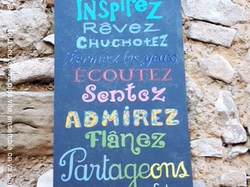 INSPIREZ
RÊVEZ
CHUCHOTEZ
Fermez les yeux
ÉCOUTEZ
Sentez
ADMIREZ
Flânez
Partageons